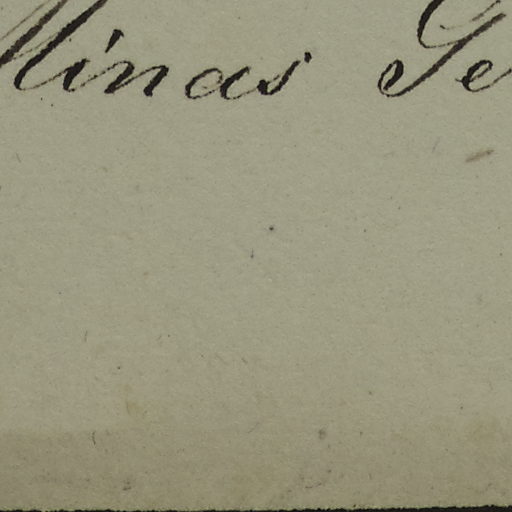 Minas Ge